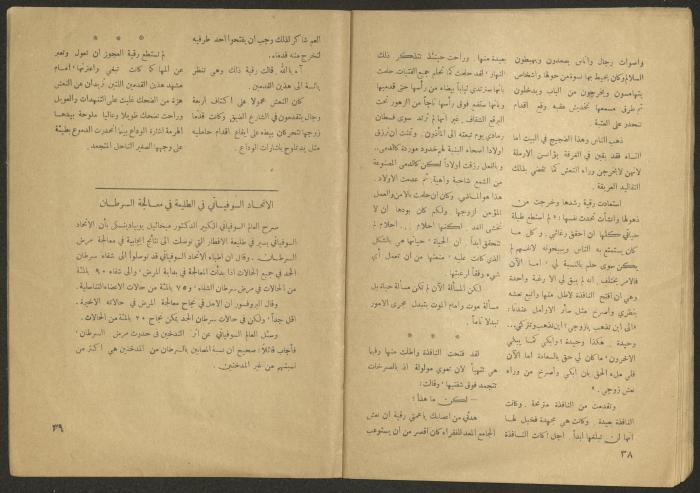 واصوات رجال وأناس يصعدون ويهبطون
السلالم وكان يحيط بها نسوة من حولها واشخاص
يتهامسون ويخرجون من الباب ويدخلون
ثم طرق مسمعها تخديش خفيه وقع اقدام
تنحدر على العتبة.
ذهب الناس وهدأ الضجيج في البيت اما
النساء فقد بقين في الغرفة يؤاسن الارملة
لانهن لا يخرجن وراء النعش كما تقضي بذلك
التقاليد العريقة.
استعادت رقية رشدها وخرجت من
ذهولها وانشأت تحدث نفسها: « لم استطع طيلة
حياتي كلها ان احقق رغائبي، وكل ما
كان يستمتع به الناس ويبيحونه لانفسهم لم
يكن سوى حلم بالنسبة لي، أما الآن
فالامر يختلف. انه لم يبق لي الا رغبة واحدة
وهي ان افتح النافذة لاطل منها واتابع نعشه
بنظري واصرخ مثل سائر الارامل عندنا:
«الى اين تذهب يا زوجي؛ اين تذهب وتتركني..
وحيدة، هكذا وحيدة؛ وابكي كما يبكي
الآخرون، ما كان لي حق بالسعادة اما الآن
فلي ملء الحق بان ابكي وأصرخ من وراء
نعش زوجي.»
وتقدمت من النافذة مترنحة. وكانت
النافذة بعيدة. وكانت هي مجهدة فخيل لها
انها لن تبلغها ابداً. اجل اكانت النافذة
جيدة منها. وراحت حينئذ تتذكر ذلك
النهار، لقد حلمت كما تحلم جميع الفتيات. حلمت
بأنها سترتدي ثياباً بيضاء من رأسها حتى قدميها
وبانها ستضع فوق رأسها تاجاً من الزهور تحت
البرقع الشفاف. غير انها لم ترتد سوى فستان
رمادي يوم تبعته الى المأذون. وتمنت ان ترزق
اولاداً اصحاء البنية لهم خدود موردة كالدمى..
وبالفعل رزقت اولاداً لكن كالدمى المصنوعة
من الشمع شاحبة واهية. ثم عدمت الاولاد.
هذا هو الماضي. وكان ان حلمت بالأمن والعمل
المؤمن لزوجها. ولكم كان بودها ان لا
تخشى الغد. لكنها احلام... احلام لم
تتحقق ابداً. ان الحياة، حياتها هي بالشكل
الذي كانت عليه، منعتها من ان تعمل أي
شيء وفقاً لرغبتها.
لكن المسألة الآن لم تكن مسألة حياة بل
مسألة موت وامام الموت يتبدل مجرى الامور
تبدلاً تاماً.
* * *
لقد فتحت النافذة واطلت منها وفيما
هي تتهيأ لان تعوي مولولة اذ بالصرخات
تتجمد فوق شفتيها، وقالت:
— لكن ما هذا؛
هدئي من اعصابك يا عمتي رقية ان نعش
الجامع المعد للفقراء كان اقصر من ان يستوعب
٣٨
العم شاكر لذلك وجب ان يفتحوا احد طرفيه
لتخرج منه قدماه.
آه يا الله. قالت رقية ذلك وهي تنظر
يائسة الى هذين القدمين.
كان النعش محمولا على اكتاف اربعة
رجال يتقدمون في الشارع الضيق وكانت قدما
زوجها تتحركان ببطء على ايقاع اقدام حامليه
مثل يد تلوح باشارات الوداع.
* * *
لم تستطع رقية العجوز ان تعول وتعبر
عن المها كما كانت تبغي واعترتها، امام
مشهد هذين القدمين اللتين تبدوان من النعش
هزة من الضحك غلبت على التنهدات والعويل
وراحت تضحك طويلا وعاليا ملوحة بيدها
الهرمة اشارة الوداع بينما انحدرت الدموع بطيئة
على وجهها الصغير الناحل المتجعد.
الاتحاد السوفياتي في الطليعة في معالجة السرطان
صرح العالم السوفياتي الكبير الدكتور ميخائيل بأن الاتحاد
السوفياتي يسير في طليعة الاقطار التي توصلت الى نتائج ايجابية في معالجة مرض
السرطان. وقال ان اطباء الاتحاد السوفياتي قد توصلوا الى شفاء سرطان
الجلد في جميع الحالات اذا بدأت المعالجة في بداية المرض، والى شفاء ٩٠ بالمئة
من الحالات في مرض سرطان الشفاه، و٧٥ بالمئة من حالات الاعضاء التناسلية.
وقال البروفسور ان الامل في نجاح معالجة المرض في حالاته الاخيرة.
اقل جداً، ولكن في حالات سرطان الجلد يمكن نجاح ٢٠ بالمئة من الحالات.
وسئل العالم السوفياتي عن اثر التدخين في حدوث مرض السرطان،
فأجاب قائلاً: صحيح ان نسبة المصابين بالسرطان من المدخنين هي اكثر من
نسبتهم من غير المدخنين.
٣٩